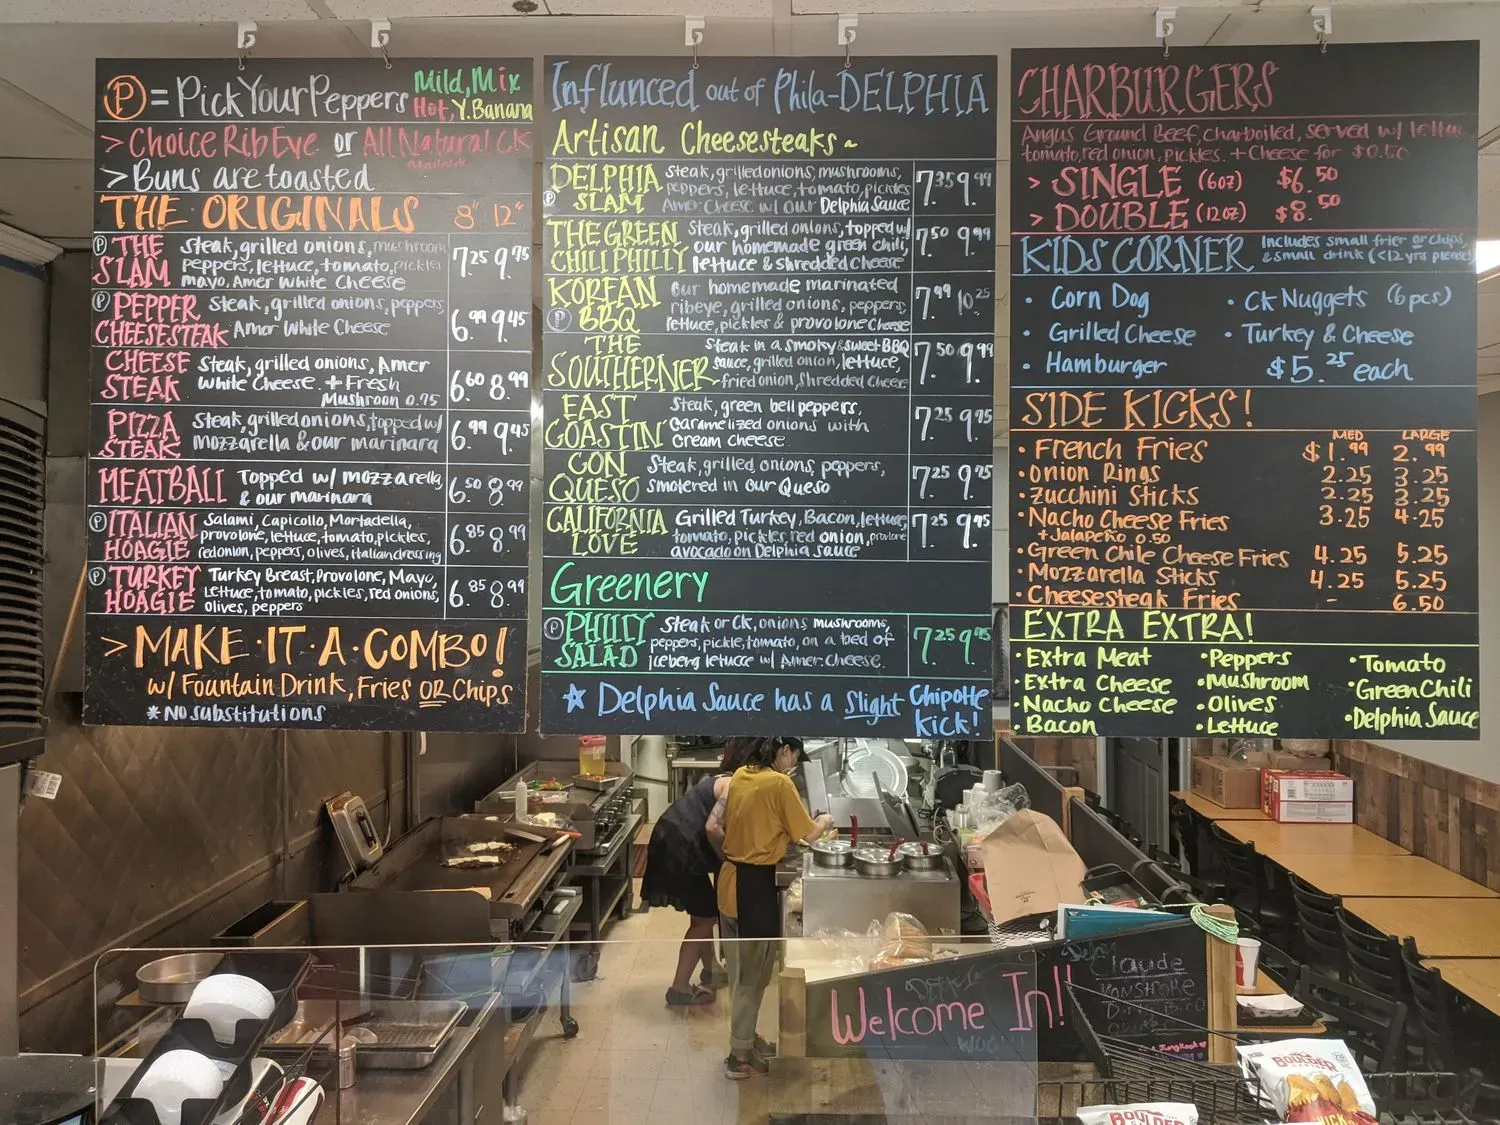 P = Pick Your Peppers Mild, Mix
Hot, Y. Banana
> Choice Rib Eye or All Natural CK
> Buns are toasted
THE ORIGINALS 8" 12"
P THE SLAM
Steak, grilled onions, mushroom
peppers, lettuce, tomato, pickles
mayo, Amer White Cheese
7.25 9.75
P PEPPER CHEESESTEAK
Steak, grilled onions, peppers,
Amer White Cheese
6.99 9.45
CHEESE STEAK
Steak, grilled onions, Amer
White Cheese. + Fresh
Mushroom 0.75
6.60 8.99
PIZZA STEAK
Steak, grilled onions, topped w/
mozzarella & our marinara
6.99 9.45
MEATBALL
Topped w/ mozzarella,
& our marinara
6.50 8.99
P ITALIAN HOAGIE
Salami, Capicollo, Mortadella,
provolone, lettuce, tomato, pickles,
red onion, peppers, olives, italian dressing
6.85 8.99
P TURKEY HOAGIE
Turkey Breast, Provolone, Mayo,
Lettuce, tomato, pickles, red onions,
olives, peppers
6.85 8.99
> MAKE·IT·A·COMBO!
w/ Fountain Drink, Fries OR Chips
* No substitutions
Influnced out of Phila-DELPHIA
Artisan Cheesesteaks ~
P DELPHIA SLAM
Steak, grilled onions, mushrooms,
peppers, lettuce, tomato, pickles
Amer Cheese w/ our Delphia Sauce
7.35 9.99
THE GREEN CHILI PHILLY
Steak, grilled onions, topped w/
our homemade green chili,
lettuce & shredded cheese
7.50 9.99
KOREAN P BBQ
Our homemade marinated
ribeye, grilled onions, peppers,
lettuce, pickles & provolone cheese
7.99 10.25
THE SOUTHERNER
Steak in a smoky & sweet BBQ
sauce, grilled onion, lettuce,
fried onion, shredded cheese
7.50 9.99
EAST COASTIN'
Steak, green bell peppers,
caramelized onions with
cream cheese
7.25 9.95
CON QUESO
Steak, grilled onions, peppers,
smotered in our Queso
7.25 9.95
CALIFORNIA LOVE
Grilled Turkey, Bacon, lettuce,
tomato, pickles, red onion, provlone
avocado on Delphia sauce
7.25 9.95
Greenery
P PHILLY SALAD
Steak or CK, onions mushrooms,
peppers, pickle, tomato, on a bed of
iceberg letucce w/ Amer. Cheese.
7.25 9.95
☆ Delphia Sauce has a slight Chipotle
kick!
CHARBURGERS
Angus Ground Beef, charboiled, served w/ lettuce
tomato, red onion, pickles. + Cheese for $0.50
> SINGLE (6oz) $6.50
> DOUBLE (12oz) $8.50
KIDS CORNER Includes small frier or chips,
& small drink (<12 yrs please)
• Corn Dog • CK Nuggets (6 pcs)
• Grilled Cheese • Turkey & Cheese
• Hamburger $5.25 each
SIDE KICKS!
MED LARGE
• French Fries $1.99 2.99
• Onion Rings 2.25 3.25
• Zucchini Sticks 2.25 3.25
• Nacho Cheese Fries 3.25 4.25
+ Jalapeño 0.50
• Green Chile Cheese Fries 4.25 5.25
• Mozzarella Sticks 4.25 5.25
• Cheesesteak Fries - 6.50
EXTRA EXTRA!
• Extra Meat • Peppers • Tomato
• Extra Cheese • Mushroom • Green Chili
• Nacho Cheese • Olives • Delphia Sauce
• Bacon • Lettuce
Welcome In!!
Claude
BOULDER
BOULDER